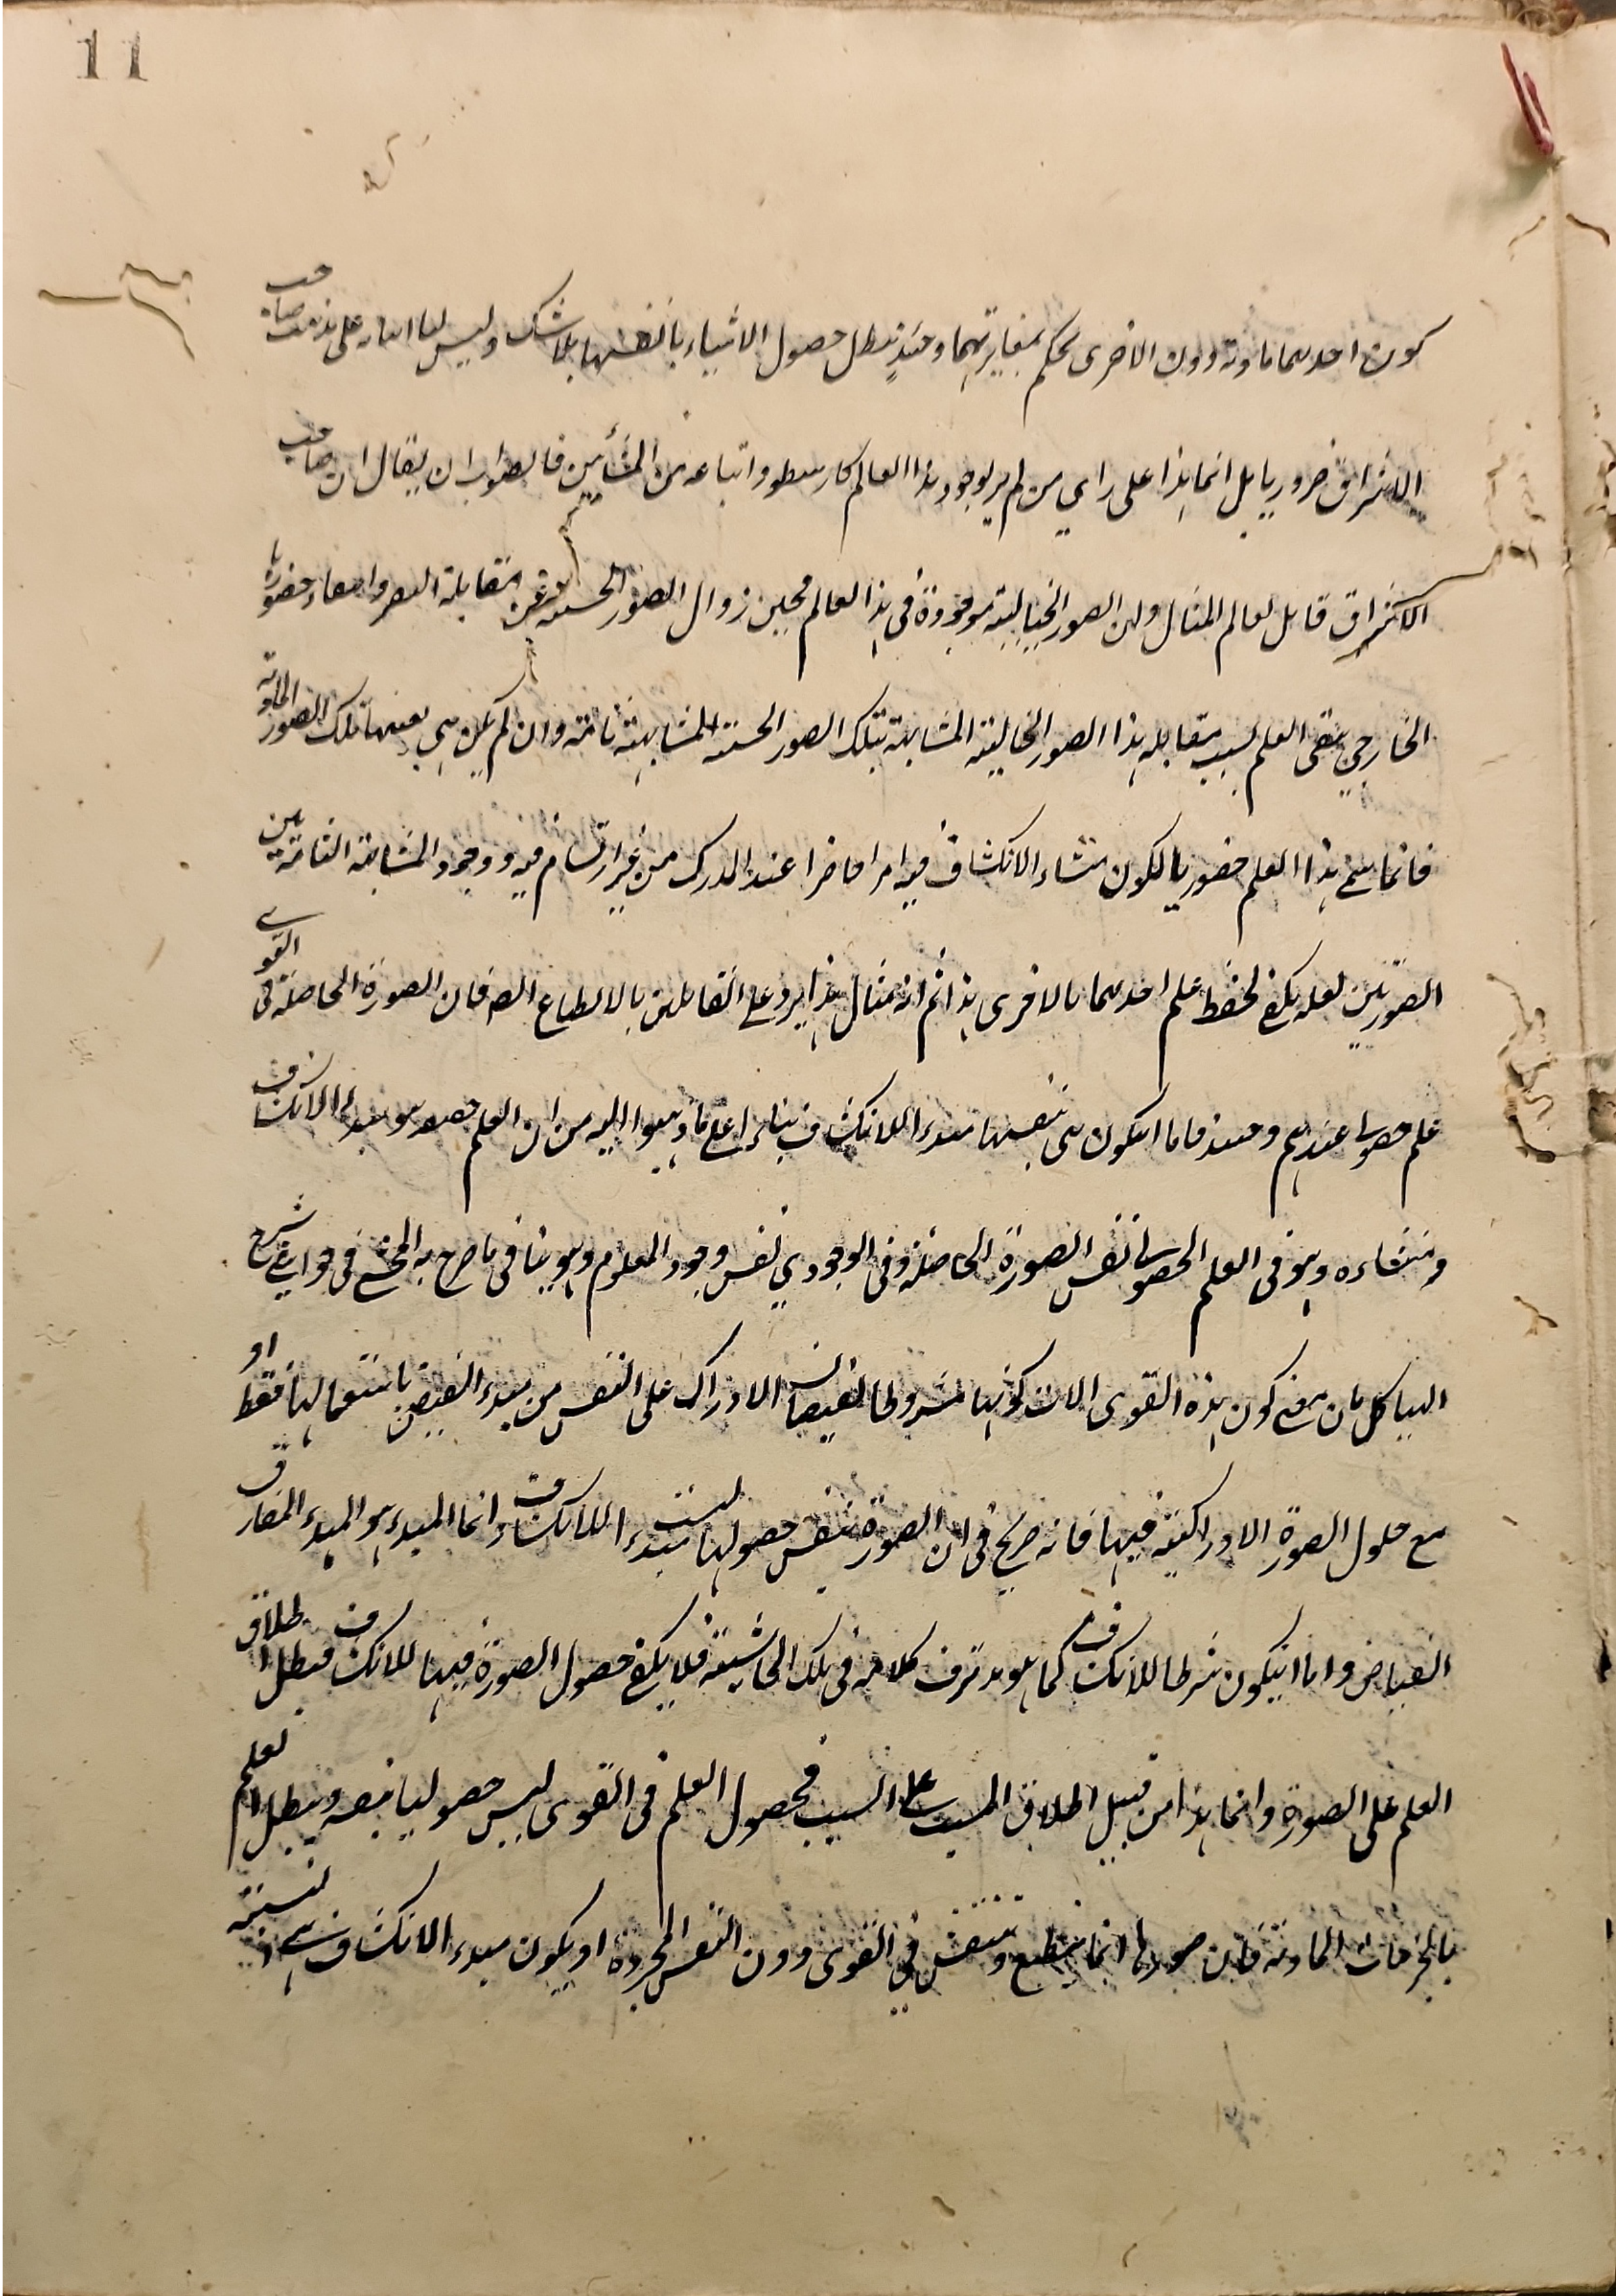 11
كون احدهما مادية دون الاخرى يحكم بمغايرتهما وحينئذ يبطل حصول الاشياء بانفسها بلا شك وليس لها على مذهب صاحب
الاشراق ضروريا بل انما هذا على راي من لم ير بوجود هذا العالم كارسطو واتباعه من المشائين فالصواب ان يقال ان صاحب
الاشراق قابل لعالم المثال ولان الصور الخيالية موجودة في هذا العالم فحين زوال الصور الحسية عن مقابلة البصر وامتعاء حضورها
الخارجي يبقى العلم بسبب مقابله هذا الصور الخالية المشابهة بتلك الصور الحسية المشابهة تامة وان لم يكن هي بعينها تلك الصور المادية
فانما سمي هذا العلم حضوريا لكون منشاء الانكشاف فيه امرا حاضرا عند المدرك من غير ارتسام فيه ووجود المشابهة التامة بين
الصورتين لعله يكفي لحفظ علم احدهما بالاخرى هذا ثم انه بمثال هذا يرد على القايلين بالانطباع الصـ فان الصورة الحاصلة في القوى
علم حصولي عندهم وحينئذ فاما انيكون هي بنفسها مبدء اللانكشاف بناء على ما ذهبوا اليه من ان العلم حصوله هو مبدء الانكشاف
ومنشاءه وهو في العلم الحصولي نفس الصورة الحاصلة وفي الوجودي نفس وجود المعلوم وهو ينافى ما صرح به المحشي في حواشي شرح
الهياكل بان معنى كون هذه القوى الات كونها مشروطا لفيضان الادراك على النفس من مبدء الفيض باستعمالها فقط او
مع حلول الصورة الادراكية فيها فانه صريح في ان الصورة بنفس حصولها ليست مبدء اللانكشاف انما المبدء هو المبدء المفارق
الفياض واما انيكون شرطا للانكشاف كما هو مدترف كلامه في تلك الحاشية فلا يكفي حصول الصورة فيها للانكشاف فبطل اطلاق
العلم على الصورة وانما هذا من قبيل اطلاق المسبب على السبب فحصول العلم في القوى ليس حصوليا بنفسه ويبطل العلم
بالجزئيات المادية فان صورها انما ينطبع وينتقش في القوى دون النفس المجردة او يكون مبدء الانكشاف بنسبته